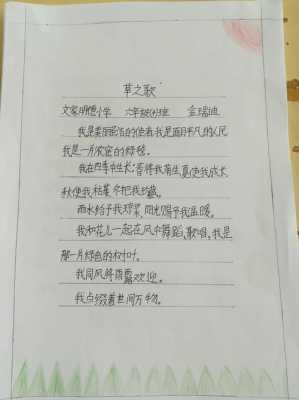 草之歌
文家明德小学 六年级(4)班 金瑞迪
我是 的使者我是面目平凡的人民
我是一片浓密的绿毯。
我在四季中生长:春将我萌生夏使我成长
秋使我枯萎冬把我埋藏。
雨水给予我琼浆,阳光赐予我温暖。
我和花儿一起在风中舞蹈歌唱。我是
那一片绿色的衬叶。
我同风将雨露欢迎。
我点缀着世间万物。